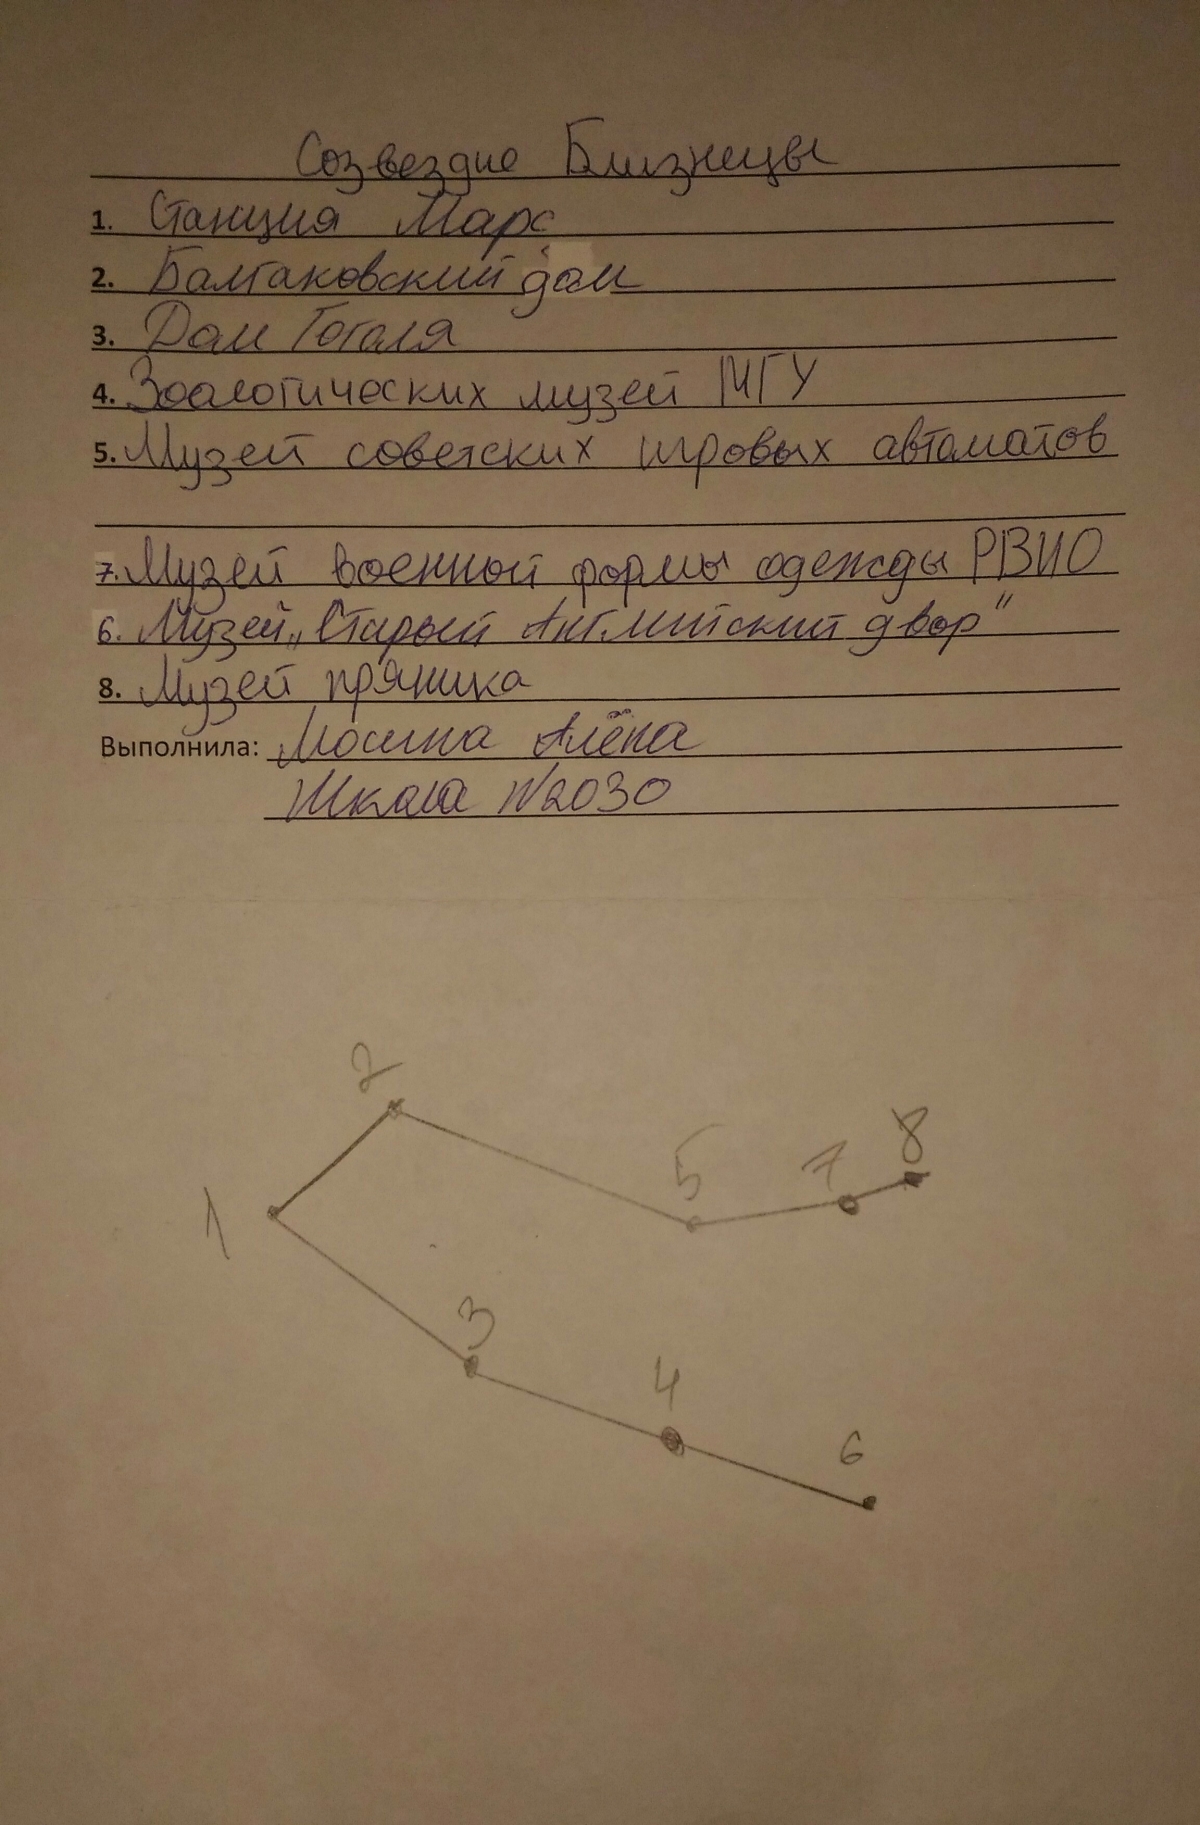 Созвездие Близнецы
1. Станция Марс
2. Балгаковский дом
3. Дом Гоголя
4. Зоологических музей МГУ
5. Музей советских игровых автоматов
7. Музей военной формы одежды РВИО
6. Музей „Старый Английский двор"
8. Музей пряника
Выполнила: Мосина Алёна
Школа №2030
2
8
5
7
1
3
4
6